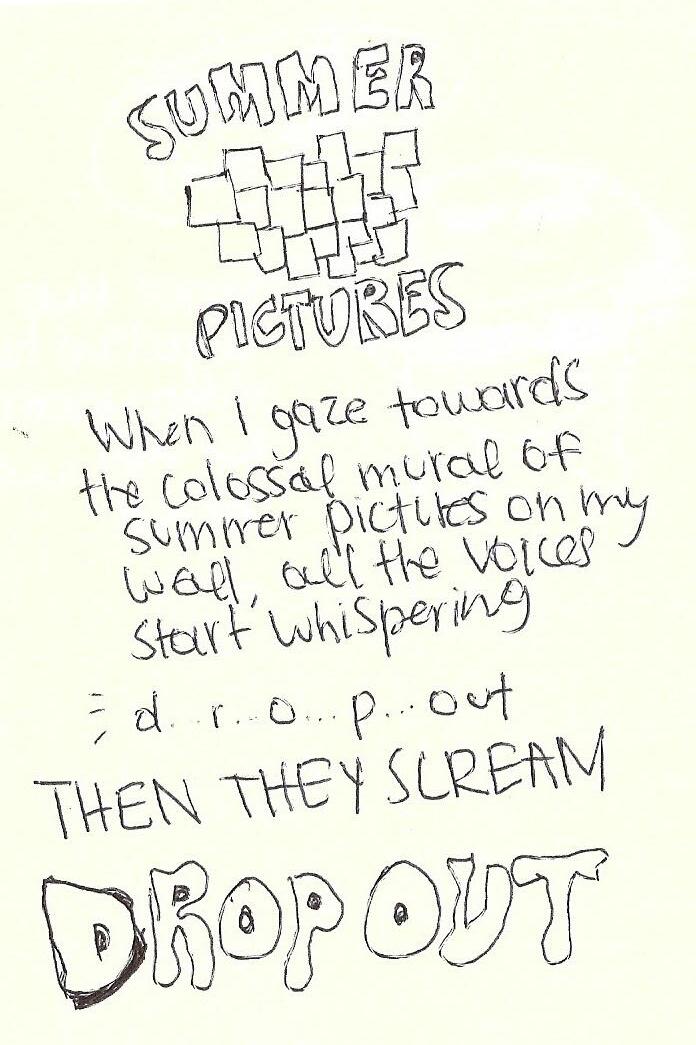 SUMMER
PICTURES
When I gaze towards
the colossal mural of
summer pictures on my
wall, all the voices
start whispering
d...r...o...p...out
THEN THEY SCREAM
DROP OUT